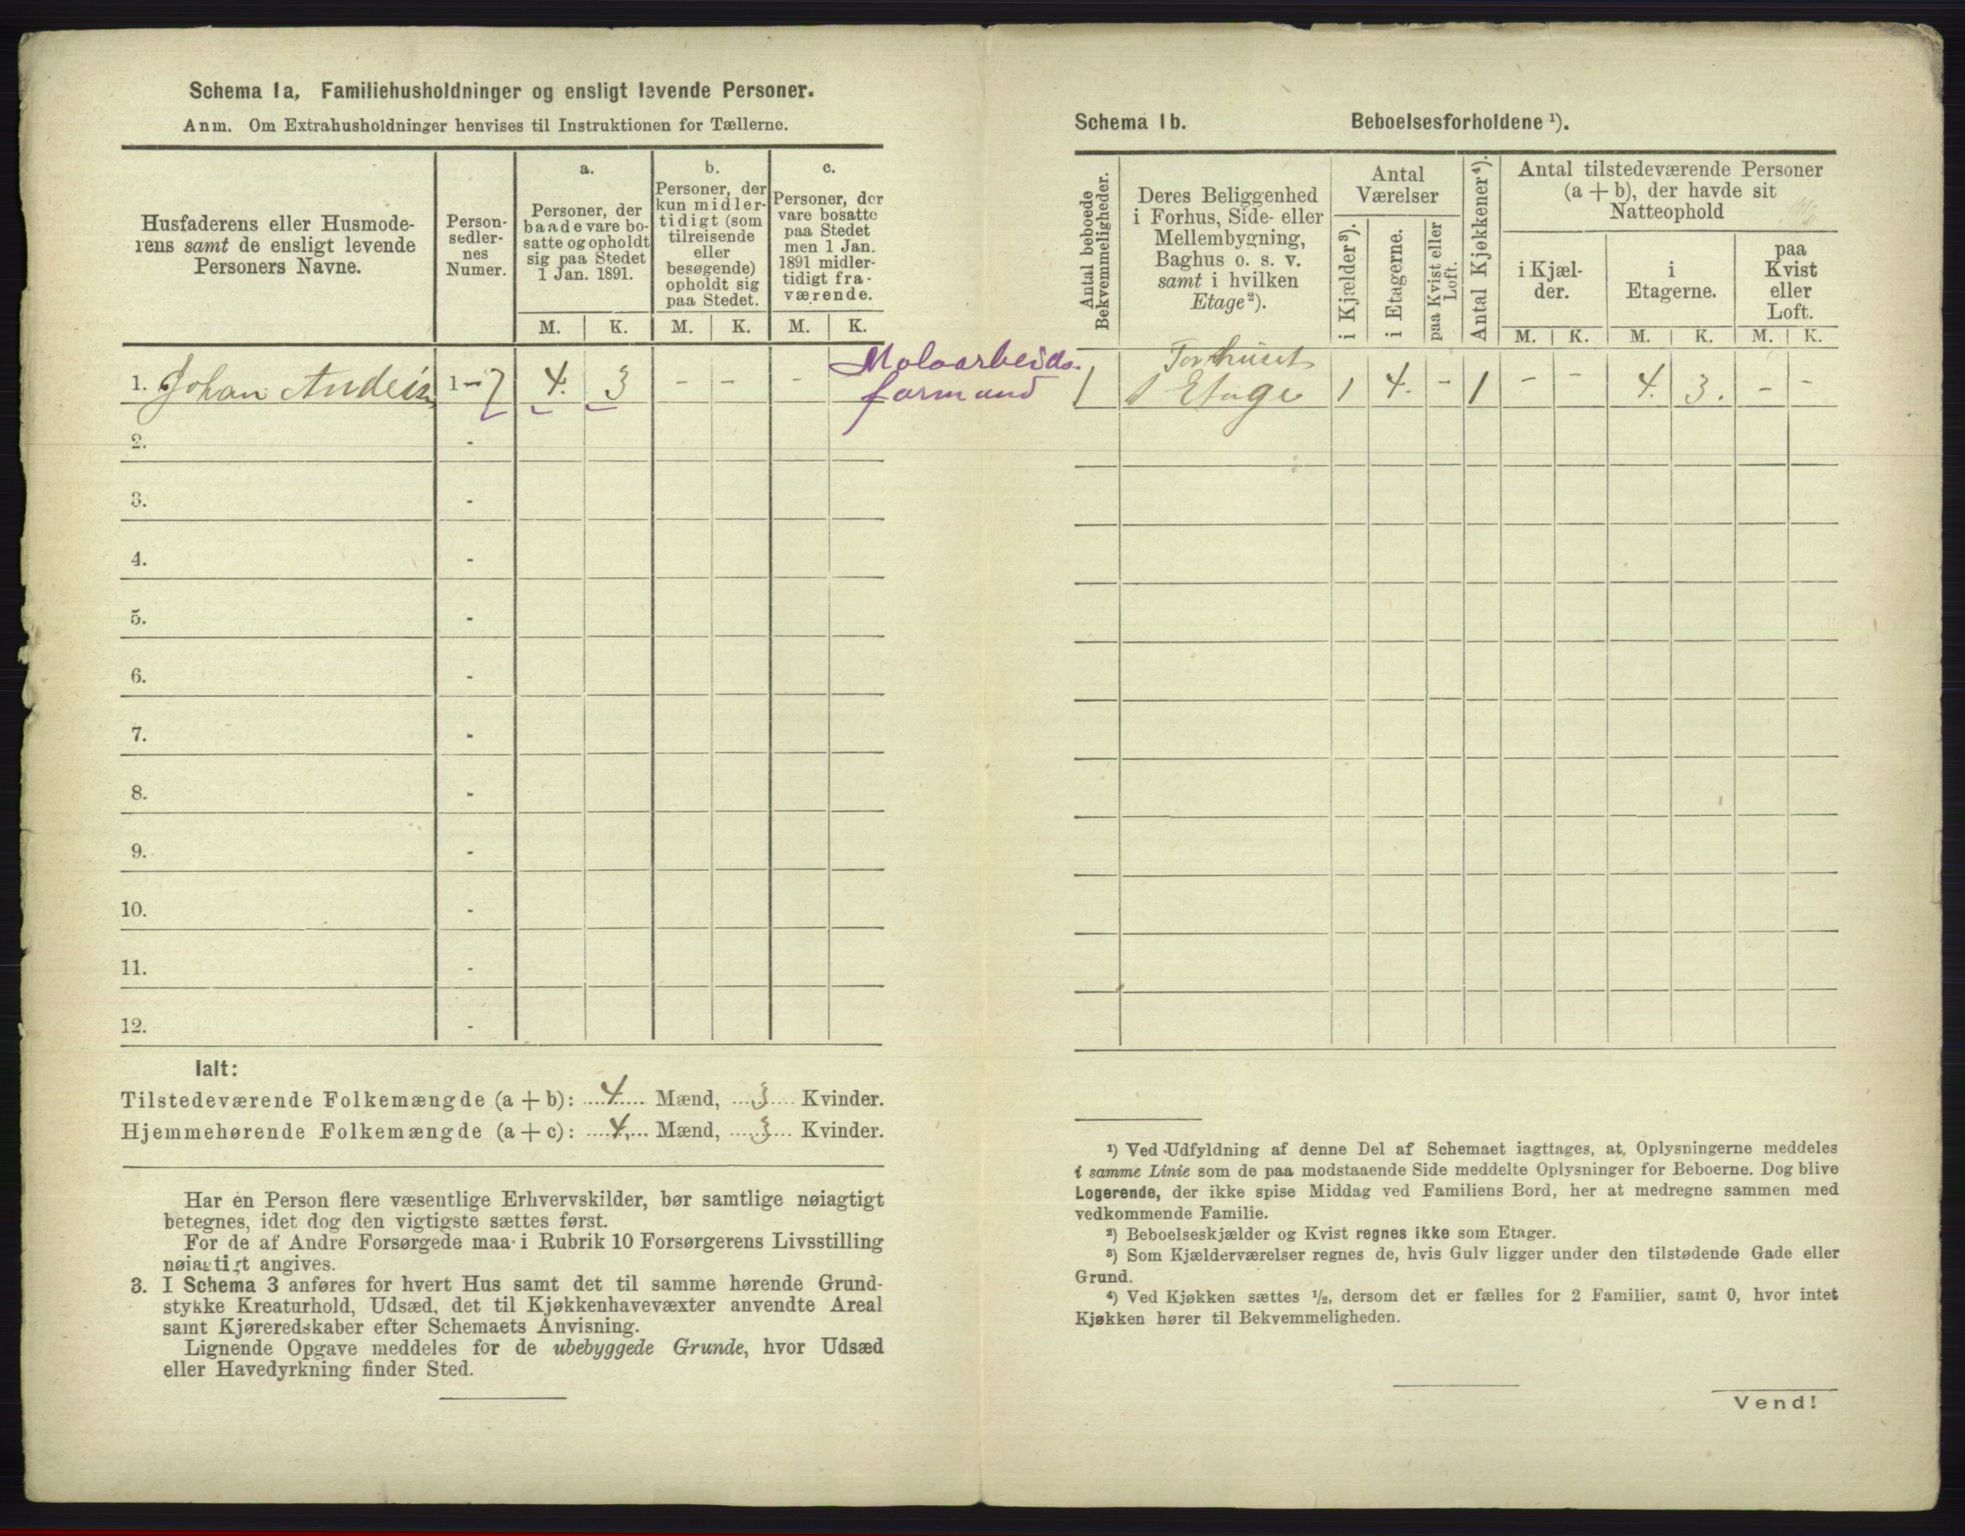 Schema 1a, Familiehusholdninger og ensligt levende Personer.
Anm. Om Extrahusholdninger henvises til Instruktionen for Tællerne.
Husfaderens eller Husmode-
rens samt de ensligt levende
Personers Navne.
Person-
sedler-
nes
Numer.
a.
Personer, der
baade vare bo-
satte og opholdt
sig paa Stedet
1 Jan. 1891.
b.
Personer, der
kun midler-
tidigt (som
tilreisende
eller
besøgende)
opholdt sig
paa Stedet.
c.
Personer, der
vare bosatte
paa Stedet
men 1 Jan.
1891 midler-
tidigt fra-
værende.
M. K. M. K. M. K.
1. Johan Anders 1-7 4. 3 - - - Moloarbeids-
formand
2. -
3. -
4. -
5. -
6. -
7. -
8. -
9. -
10. -
11. -
12. -
Ialt:
Tilstedeværende Folkemængde (a + b): 4 Mænd, 3 Kvinder.
Hjemmehørende Folkemængde (a + c): 4. Mænd, 3 Kvinder.
Har en Person flere væsentlige Erhvervskilder, bør samtlige nøiagtigt
betegnes, idet dog den vigtigste sættes først.
For de af Andre Forsørgede maa i Rubrik 10 Forsørgerens Livsstilling
nøiagtigt angives.
3. I Schema 3 anføres for hvert Hus samt det til samme hørende Grund-
stykke Kreaturhold, Udsæd, det til Kjøkkenhavevæxter anvendte Areal
samt Kjøreredskaber efter Schemaets Anvisning.
Lignende Opgave meddeles for de ubebyggede Grunde, hvor Udsæd
eller Havedyrkning finder Sted.
Schema 1b. Beboelsesforholdene ¹).
Antal beboede
Bekvemmeligheder.
Deres Beliggenhed
i Forhus, Side- eller
Mellembygning,
Baghus o. s. v.
samt i hvilken
Etage²).
Antal
Værelser
i Kjælder³).
i Etagerne.
paa Kvist eller
Loft.
Antal Kjøkkener⁴).
Antal tilstedeværende Personer
(a + b), der havde sit
Natteophold
i Kjæl-
der.
i
Etagerne.
paa
Kvist
eller
Loft.
M. K. M. K. M. K.
Forhuset
1 1 Etage 1 4. - 1 - - 4. 3. - -
¹) Ved Udfyldning af denne Del af Schemaet iagttages, at Oplysningerne meddeles
i samme Linie som de paa modstaaende Side meddelte Oplysninger for Beboerne. Dog blive
Logerende, der ikke spise Middag ved Familiens Bord, her at medregne sammen med
vedkommende Familie.
²) Beboelseskjælder og Kvist regnes ikke som Etager.
³) Som Kjælderværelser regnes de, hvis Gulv ligger under den tilstødende Gade eller
Grund.
⁴) Ved Kjøkken sættes ½, dersom det er fælles for 2 Familier, samt 0, hvor intet
Kjøkken hører til Bekvemmeligheden.
Vend!